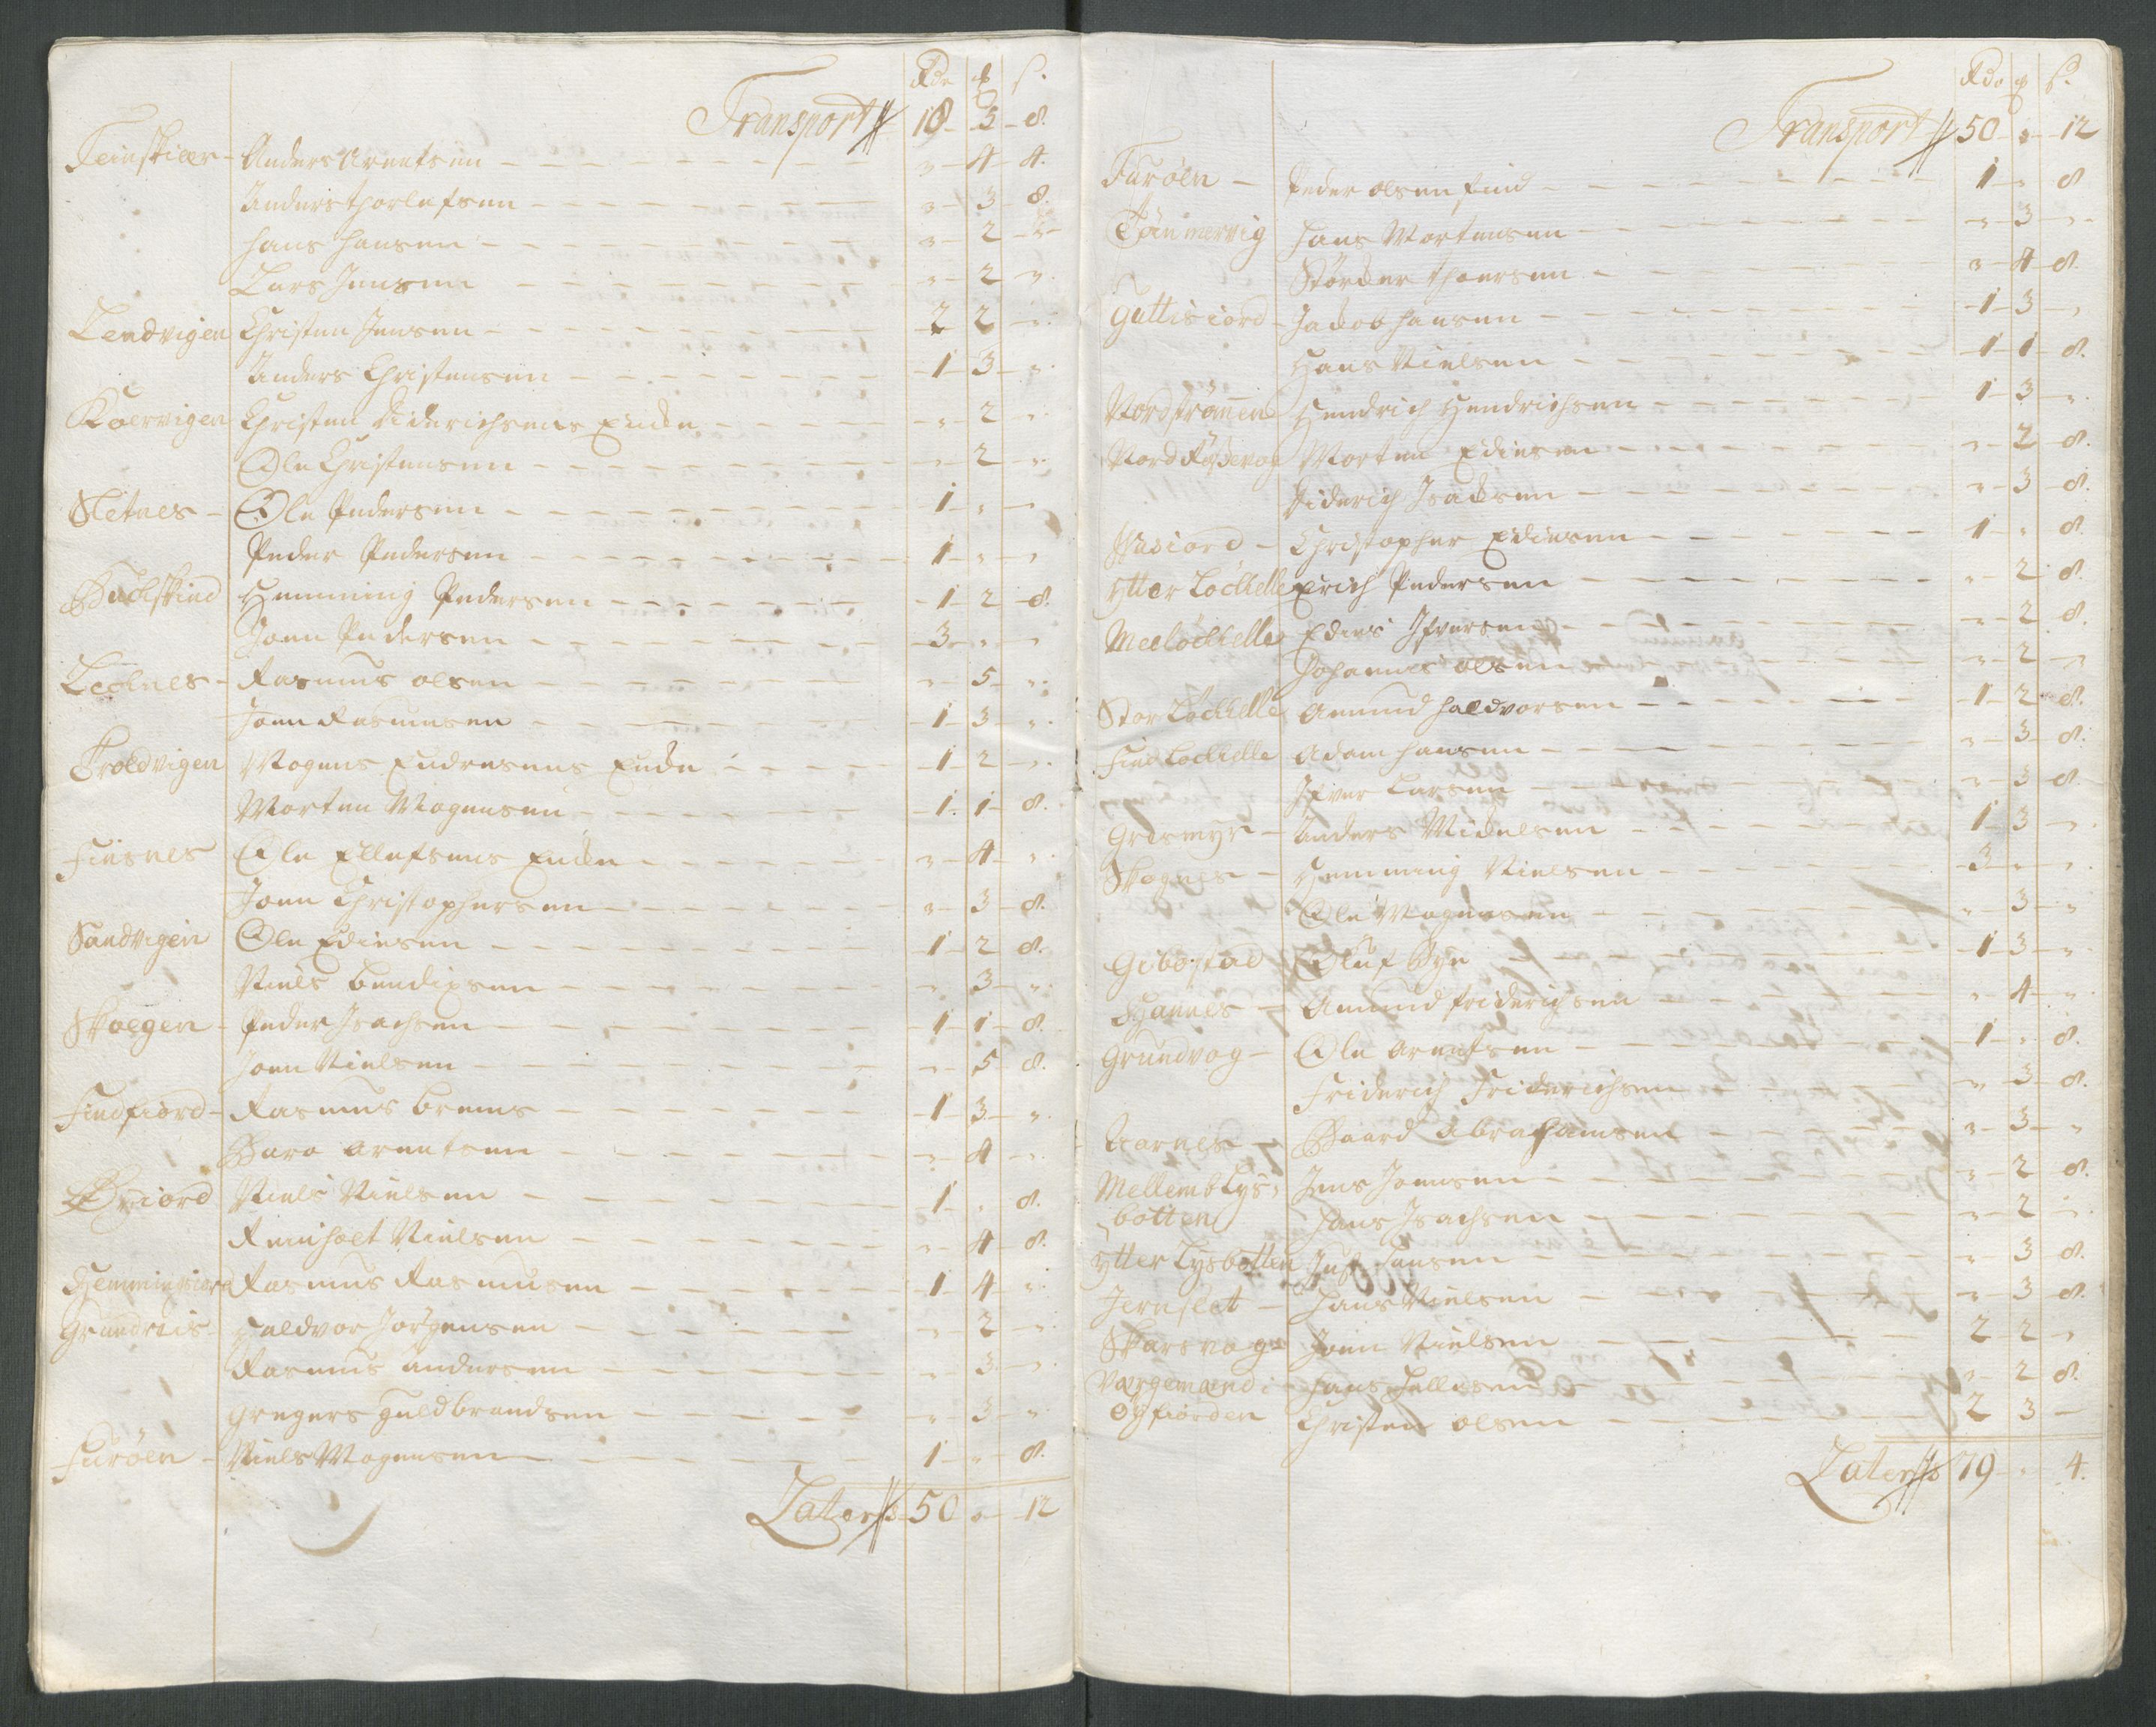 Rdr ꝑ ß.
Transport 18 5 8.
Teinskiær - Anders Arentsen - " 4 4.
Anders Thorlefsen - " 3 8.
Hans Hansen - " 2 "
Lars Jensen - " 2 "
Lendvigen Christen Jensen - 2 2 "
Anders Christensen - 1 3 "
Kaervigen Christen Diderichsens Encke - " 2 "
Ole Christensen - " 2 "
Sletnes - Ole Pedersen - 1 " "
Peder Pedersen - 1 " "
Buchskind Hemming Pedersen - 1 2 8.
Joen Pedersen - 3 " "
Lecknes - Rasmus Olsen - " 5 "
Joen Rasmusen - 1 3 "
Troldvigen Mogens Endresens Encke - 1 2 "
Morten Mogensen - 1 1 8.
Finsnes Ole Ellefsens Encke - " 4 "
Joen Christophersen - " 3 8.
Sandvigen Ole Edisen - 1 2 8.
Niels Bendixsen - " 3 "
Skoegen - Peder Isachsen - 1 1 8.
Joen Nielsen - " 5 8.
Findfiord - Rasmus Brems - 1 3 "
Baro Arentsen - " 4 "
Øyiord Niels Nielsen - 1 " 8.
Reinholt Nielsen - " 4 8.
Hemmingsiord Rasmus Rasmusen - 1 4 "
Grundreis Haldvor Jørgensen - " 2 "
Rasmus Andersen - " 3 "
Gregers Guldbrandsen - " 3 "
Furøen - Niels Mogensen - 1 " 8.
Laters 50 " 12

Rdr ꝑ ß.
Transport 50 " 12
Furøen - Peder Olsen Find - 1 " 8
Tømmervig Hans Mortensen - " 3 "
Størcker Thoersen - " 4 8.
Guttisiord - Jacob Hansen - 1 3 "
Hans Nielsen - 1 1 8.
Nordstrømen Hendrich Hendrichsen - 1 3 "
Nord Røysevog Morten Edisen - " 2 8.
Diderich Isachsen - " 3 8.
Christopher Edisen - 1 " 8.
Ytter Lockelle Erich Pedersen - " 2 8.
Meelockelle Edis Ifversen - " 2 8.
Johannes Olsen - " 2 "
Stor Lockelle Amund Haldvorsen - 1 2 8.
Find Lockelle Adam Hansen - " 3 8.
Ifver Larsen - " 3 8.
Grosmyr - Anders Michelsen - 1 3 "
Skognes - Hemming Nielsen - 3 " "
Ole Mogensen - " 3 "
Gibostad Oluf Bye - 1 3 "
Amund Friderichsen - " 4 "
Grundvog - Ole Arentsen - 1 " 8.
Friderich Friderichsen - " 3 8.
Aarnes - Baard Abrahamsen - " 3 "
Mellemb Lys- Jens Joensen - " 2 8.
botten Hans Isachsen - " 2 "
Ytter Lysbotten Hansen - " 3 8.
Jernslet - Hans Nielsen - " 3 8.
Skarsvog - Joen Nielsen - 2 2 "
Hans Hellisen - " 2 8.
Øyfiorden Christen Olsen - 2 3 -
Laters 79 " 4.